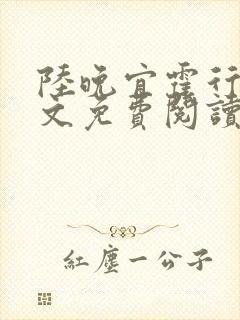 陸晚宜霆行
文免費閱讀
紅塵一公子